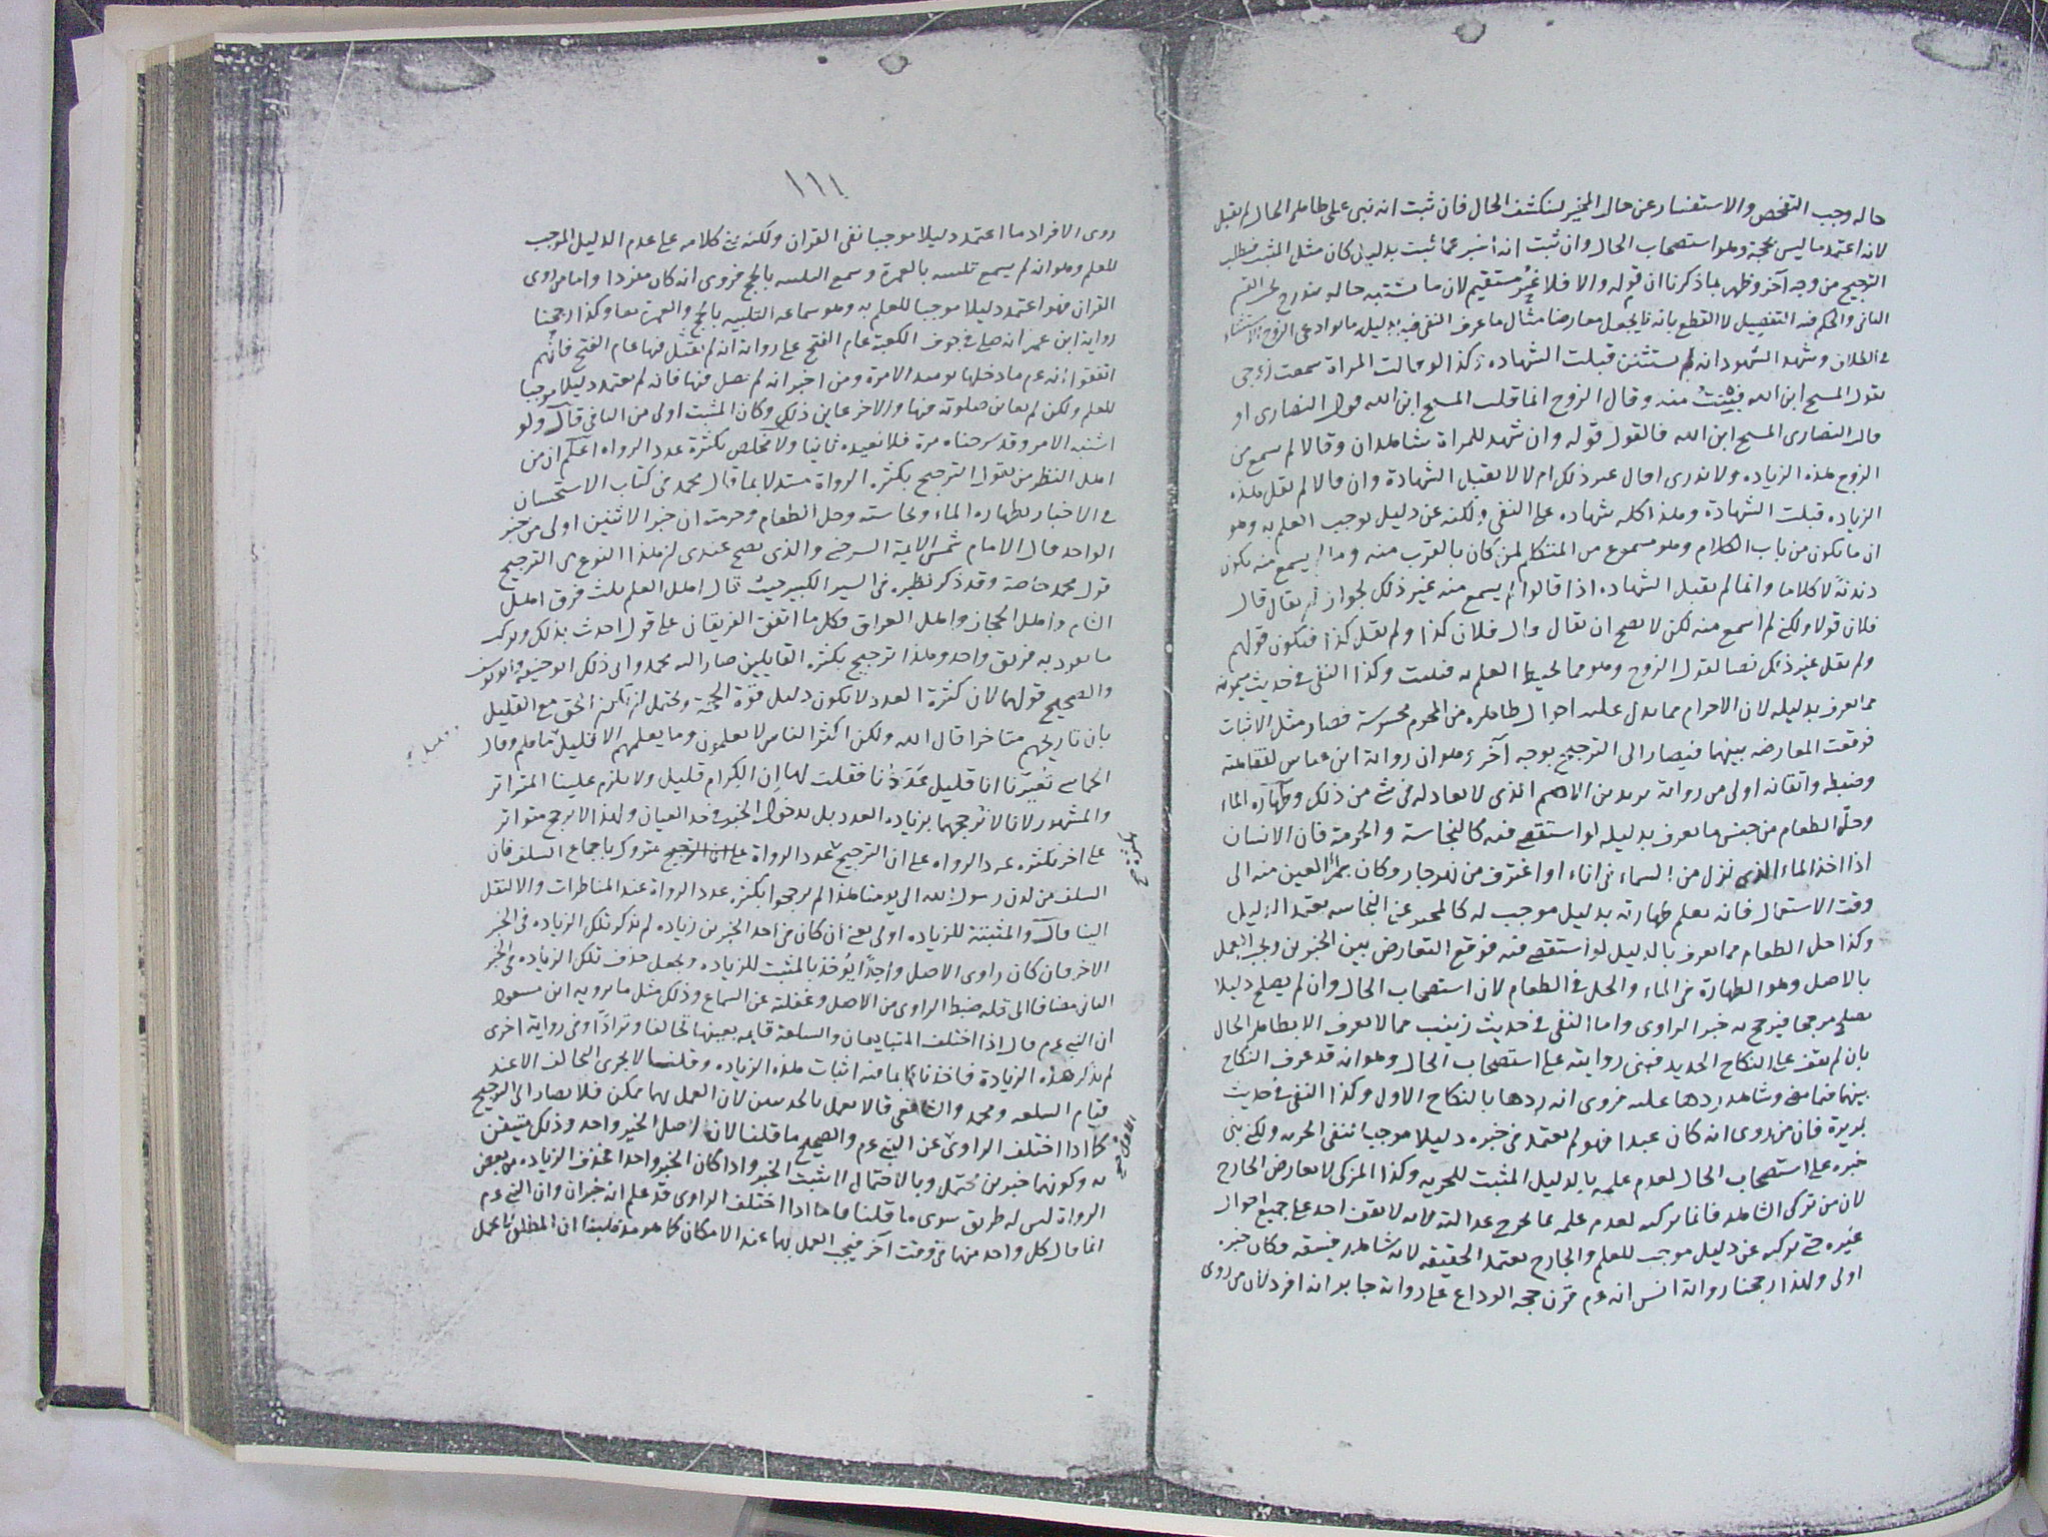 حاله وجب التفحص والاستفسار عن حال المخبر لينكشف الحال فان ثبت انه نبى على ظاهر الحال لم يقبل
لانه اعتمد ما ليس بحجة وهو استصحاب الحال وان ثبت انه اخبر عما ثبت بدليل كان مثل المثبت فيطلب
الترجيح من وجه آخر وظهر بما ذكرنا ان قوله والا فلا غير مستقيم لان ما يشتبه حاله مندرج تحت القسم
الثانى والحكم فيه التفصيل لا القطع بانه لا يجعل معارضا مثال ما عرف النفى فيه بدليله ما لو ادعى الزوج الاستثناء
فى الطلاق وشهد الشهود انه لم يستثن قبلت الشهاده وكذا لو قالت المراة سمعت زوجى
يقول المسيح ابن الله فبينت منه وقال الزوج انما قلت المسيح ابن الله قول النصارى او
قالت النصارى المسيح ابن الله فالقول قوله وان شهد للمراة شاهدان وقالا لم نسمع من
الزوج هذه الزياده ولا ندرى اقال غير ذلك ام لا لا تقبل الشهادة وان قالا لم يقل هذه
الزياده قبلت الشهادة وهذا كله شهاده على النفى ولكنه عن دليل يوجب العلم به وهو
ان ما يكون من باب الكلام وهو مسموع من المتكلم لمن كان بالقرب منه وما لم يسمع منه يكون
دندنة لا كلاما وانما لم يقبل الشهاده اذا قالوا لم يسمع منه غير ذلك لجواز ان يقال قال
فلان قولا ولكن لم اسمع منه لكن لا يصح ان يقال قال فلان كذا ولم يقل كذا فيكون قولهم
ولم يقل غير ذلك نصا لقول الزوج وهو مما يحيط العلم به فقبلت وكذا النفى فى حديث ميمونة
مما يعرف بدليله لان الاحرام مما يدل عليه احوال ظاهره من المحرم محسوسة فصار مثل الاثبات
فوقعت المعارضه بينهما فيصار الى الترجيح بوجه آخر وهو ان رواية ابن عباس لفقاهته
وضبطه واتقانه اولى من رواية يزيد بن الاصم الذى لا يعادله فى شى من ذلك وطهارة الماء
وحل الطعام من جنس ما يعرف بدليله لو استقصى فيه كالنجاسة والحرمة فان الانسان
اذا اخذ الماء الذى نزل من السماء فى اناء او اغترف من نهر جار وكان بمرأى العين منه الى
وقت الاستعمال فانه يعلم طهارته بدليل موجب له كالمخبر عن النجاسه يعتمد الدليل
وكذا حل الطعام مما يعرف بالدليل لو استقصى فيه فوقع التعارض بين الخبرين ويجب العمل
بالاصل وهو الطهارة فى الماء والحل فى الطعام لان استصحاب الحال وان لم يصلح دليلا
يصلح مرجحا فيترجح به خبر الراوى واما النفى فى حديث زينب مما لا يعرف الا بظاهر الحال
بان لم يقف على النكاح الجديد فبنى روايته على استصحاب الحال وهو انه قد عرف النكاح
بينهما فيما مضى وشاهد ردها عليه فروى انه ردها بالنكاح الاول وكذا النفى فى حديث
بريرة فان من روى انه كان عبدا فهو لم يعتمد فى خبره دليلا موجبا لنفى الحريه ولكنه بنى
خبره على استصحاب الحال لعدم علمه بالدليل المثبت للحريه وكذا المزكى لا يعارض الجارح
لان من تزكى الشاهد فانما يزكيه لعدم علمه بما يجرح عدالته لانه لا يقف احد على جميع احوال
غيره حتى يزكيه عن دليل موجب للعلم والجارح يعتمد الحقيقه لانه شاهد فيسقه فكان خبره
اولى ولهذا رجحنا رواية انس انه عم قرن حجه الوداع على رواية جابر انه افرد لان من روى
١١١
روى الافراد ما اعتمد دليلا موجبا نفى القران ولكنه بنى كلامه على عدم الدليل الموجب
للعلم وهو انه لم يسمع تلبيته بالعمرة وسمع التلبيه بالحج فروى انه كان مفردا واما من روى
القران فهو اعتمد دليلا موجبا للعلم به وهو سماعه التلبيه بالحج والعمرة معا وكذا رجحنا
رواية ابن عمر انه صلى فى جوف الكعبة عام الفتح على رواية انه لم يصل فيها عام الفتح فانهم
اتفقوا انه عم ما دخلها يومئذ الا مرة ومن اخبر انه لم يصل فيها فانه لم يعتمد دليلا موجبا
للعلم ولكن لم يعاين صلوته فيها والاخر عاين ذلك وكان المثبت اولى من النافى قال ولو
اشتبه الامر وقد شرحناه مرة فلا نعيده ثانيا ولا تخلص بكثرة عدد الرواه اعلم ان من
اهل النظر من يقول الترجيح بكثرة الرواة مستدلا بما قال محمد فى كتاب الاستحسان
فى الاخبار بطهارة الماء ونجاسته وحل الطعام وحرمته ان خبر الاثنين اولى من خبر
الواحد قال الامام شمس الايمة السرخسى والذى يصح عندى ان هذا النوع من الترجيح
قول محمد خاصة وقد ذكر نظيره فى السير الكبير حيث قال اهل العلم ثلث فرق اهل
الشام واهل الحجاز واهل العراق فكل ما اتفق الفريقان على قول اخذت بذلك وتركت
ما تفرد به فريق واحد وهذا ترجيح بكثرة القايلين صار اليه محمد وابى ذلك ابو حنيفه وابو يوسف
والصحيح قولهما لان كثرة العدد لا يكون دليل قوة الحجة ويحتمل ان يكون الحق مع القليل
بان تاريخهم متاخرا قال الله ولكن اكثر الناس لا يعلمون وما يعلمهم الا قليل ما هم وقال
الحماسى تعيرنا انا قليل عددنا فقلت لها ان الكرام قليل ولا يلزم علينا المتواتر
والمشهور لانا لا نرجحهما بزيادة العدد بل بدخول الخبر فى حد العيان ولهذا لا يرجح متواتر
على اخر بكثره عدد الرواه على ان الترجيح بعدد الرواة متروك باجماع السلف فان
السلف من لدن رسول الله الى يومنا هذا لم يرجحوا بكثرة عدد الرواة عند المناظرات والا لنقل
الينا قال والمثبتة للزياده اولى يعنى ان كان فى احد الخبرين زياده لم يذكر تلك الزياده فى الخبر
الاخر فان كان راوى الاصل واحدا يؤخذ بالمثبت للزياده ويجعل حذف تلك الزياده فى الخبر
الثانى مضافا الى قله ضبط الراوى من الاصل وغفلته عن السماع وذلك مثل ما يرويه ابن مسعود
ان النبى عم قال اذا اختلف المتبايعان والسلعة قايمه بعينها تحالفا وترادا وفى رواية اخرى
لم يذكر هذه الزيادة فاخذنا بما فيه اثبات هذه الزياده وقلنا لا يجرى التحالف الا عند
قيام السلعه ومحمد والشافعى قالا يعمل بالحديثين لان العمل بهما ممكن فلا يصار الى الترجيح
كما اذا اختلف الراوى عن النبى عم والصحيح ما قلنا لان اصل الخبر واحد وذلك متيقن
به وكونهما خبرين محتمل وبالاحتمال لا يثبت الخبر واذا كان الخبر واحدا فحذف الزياده من بعض
الرواة ليس له طريق سوى ما قلنا فاما اذا اختلف الراوى فقد علم انه خبران وان النبى عم
انما قال كل واحد منهما فى وقت آخر فيجب العمل بهما عند الامكان كما هو مذهبنا ان المطلق لا يحمل